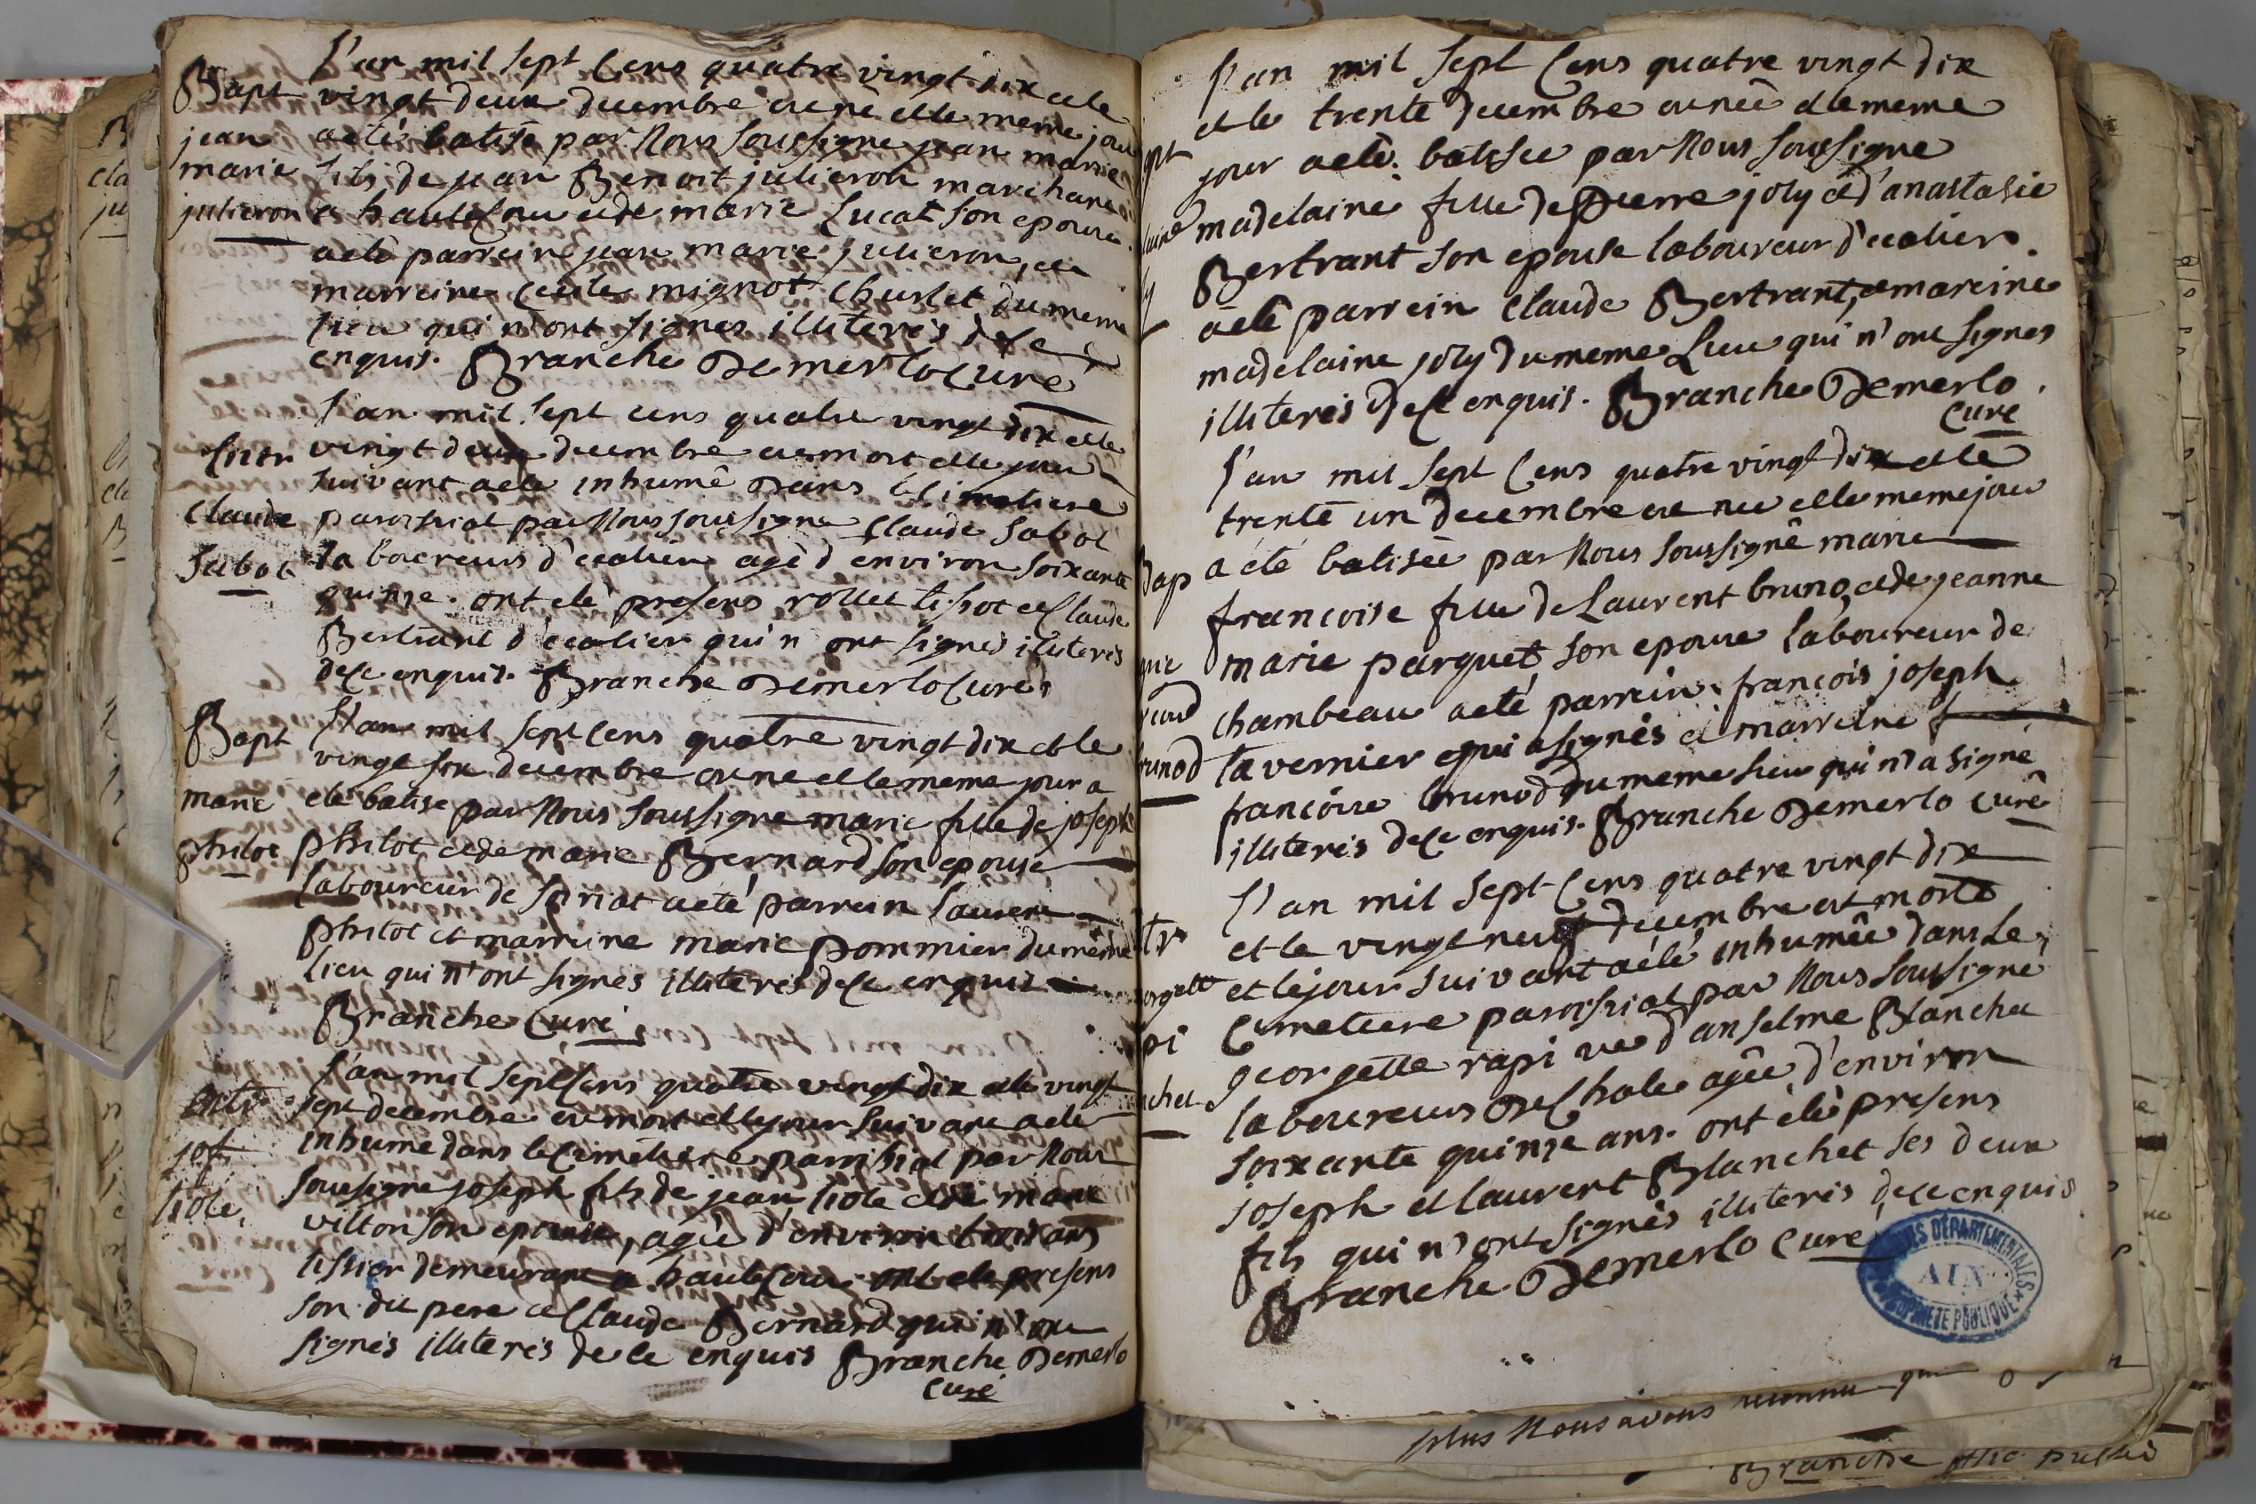 L'an mil sept cens quatre vingt dix et le
Bapt vingt deux decembre est né et le meme jour
jean a eté batisé par Nous soussigné jean marie
marie fils de jean Benoit julieron marchand
julieron a hautecour et de marie Lucat son epouse
a eté parrein jean marie julieron, et
marreine Cecile mignot Churlet du meme
lieu qui n'ont signes illiterés de ce
enquis. Branche Demerlo Curé
L'an mil sept cens quatre vingt dix et le
Entr vingt deux decembre est mort et le jour
suivant a eté inhumé Dans le cimetiere
Claude paroissial par Nous soussigné Claude Sabot
Sabot laboureur d'ecolier agé d'environ soixante
quinze. ont eté presens rollet tissot et Claude
Bertrant d'ecolier qui n'ont signes illiterés
de ce enquis. Branche Demerlo Curé
Bapt L'an mil sept cens quatre vingt dix et le
vingt six decembre est né et le meme jour a
marie eté batisé par Nous soussigné marie fille de joseph
philot philot et de marie Bernard son epouse
laboureur de soriat a eté parrein laurent
philot et marreine marie pommier du même
lieu qui n'ont signés illiterés de ce enquis
Branche Curé
L'an mil sept cens quatre vingt dix et le vingt
Entr sept decembre est mort et le jour suivant a eté
inhumé dans le Cimetiere paroissial par Nous
jos soussigné joseph fils de jean liole et de marie
liole vilton son epouse, agé d'environ trois ans
tissier demeurant a hautecour ont eté presens
son dit pere et Claude Bernard qui n'ont
signés illiterés de ce enquis Branche Demerlo
curé
L'an mil sept Cens quatre vingt dix
et le trente decembre est née et le meme
jour a eté batisée par Nous soussigné
madelaine fille de pierre joly et d'anastasie
Bertrant son epouse laboureur d'ecolier.
a eté parrein Claude Bertrant, et mareine
madelaine joly du meme Lieu qui n'ont signes
illiterés de ce enquis. Branche Demerlo
Curé
L'an mil sept Cens quatre vingt dix et le
trente un decembre est née et le meme jour
Bap a eté batisée par Nous soussigné marie
francoise fille de Laurent bruno, et de jeanne
marie parquet son epouse laboureur de
chambeau a eté parrein francois joseph
tavernier qui a signés et marreine f
brunod francoise brunod du meme lieu qui n'a signé
illiterés de ce enquis. Branche Demerlo curé
L'an mil sept Cens quatre vingt dix
et le vingt neuf decembre est morte
et le jour suivant a eté inhumée dans Le
Cimetiere paroissial par Nous soussigné
georgette rapi ve d'anselme Blanchet
laboureur De Chale agée d'environ
soixante quinze ans. ont eté presens
joseph et laurent Blanchet ses deux
fils qui n'ont signés illiterés de ce enquis
Branche Demerlo Curé
DÉPARTEMENTALES
AIN
PROPRIÉTÉ PUBLIQUE
plus Nous avons reconnu que
Branche